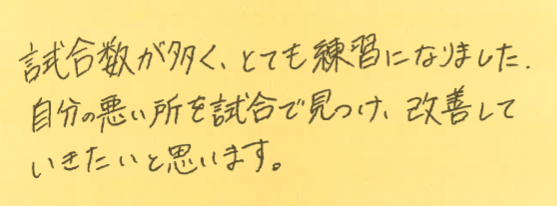 試合数が多く、とても練習になりました.
自分の悪い所を試合で見つけ、改善して
いきたいと思います。